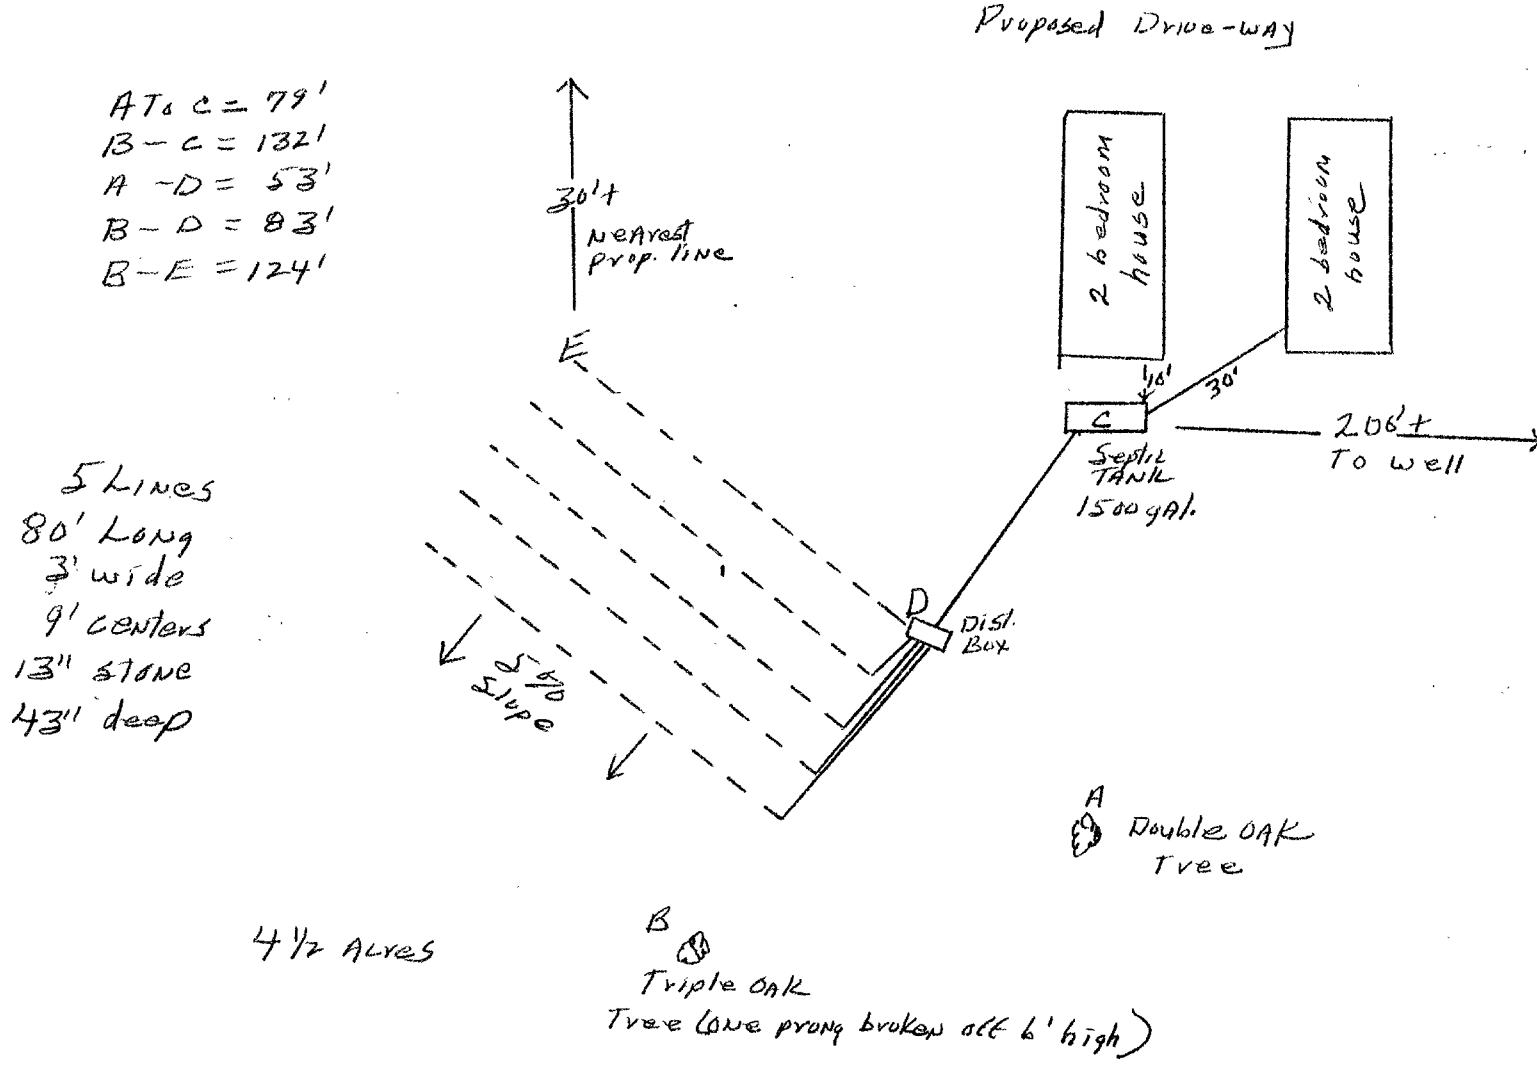 Proposed Drive-way
A To C = 79'
B - C = 132'
A - D = 53'
B - D = 83'
B - E = 124'
30'+
Nearest
prop. line
2 bedroom
house
2 bedroom
house
E
10'
30'
C
Septic
TANK
1500 gAl.
206'+
To well
5 Lines
80' Long
3' wide
9' centers
13" stone
43" deep
D
Dist.
Box
5%
Slope
A
Double OAK
Tree
4 1/2 Acres
B
Triple OAK
Tree (one prong broken off 6' high)